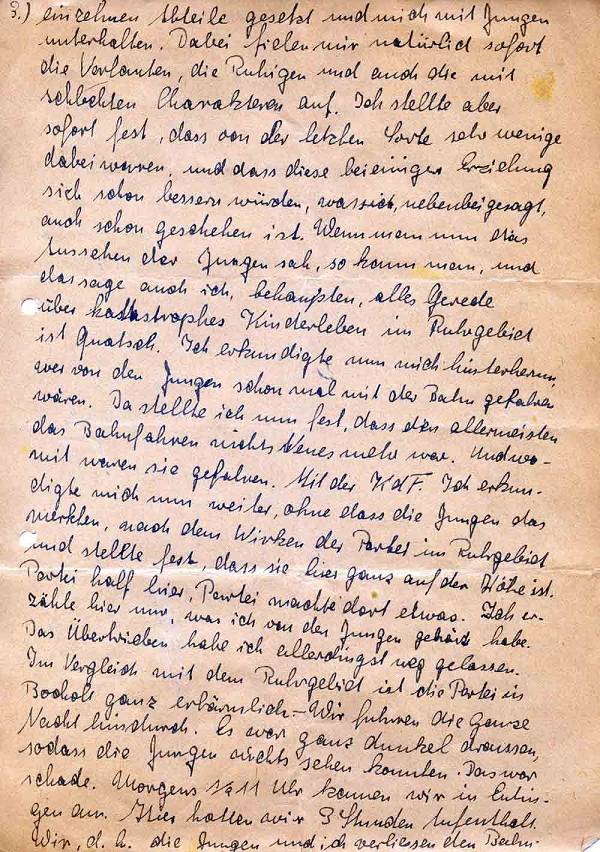 3.) einzelnen Abteile gesetzt und mich mit Jungen
unterhalten. Dabei fielen mir natürlich sofort
die Verlauten, die Ruhigen und auch die mit
schlechten Charakteren auf. Ich stellte aber
sofort fest, dass von der letzten Sorte sehr wenige
dabei waren, und dass diese bei einiger Erziehung
sich schon bessern würden, was sich, nebenbei gesagt,
auch schon geschehen ist. Wenn man nun das
Aussehen der Jungen sah, so kann man, und
das sage auch ich, behaupten, alles Gerede
über katastrophes Kinderleben im Ruhrgebiet
ist Quatsch. Ich erkundigte nun mich hinterherum,
wer von den Jungen schon mal mit der Bahn gefahren
wären. Da stellte ich nun fest, dass den allermeisten
das Bahnfahren nichts Neues mehr war. Und wo-
mit waren sie gefahren. Mit der KdF. Ich erkun-
digte mich nun weiter, ohne dass die Jungen das
merkten, nach dem Wirken der Partei im Ruhrgebiet
und stellte fest, dass sie hier ganz auf der Höhe ist.
Partei half hier, Partei machte dort etwas. Ich er-
zähle hier nur, was ich von den Jungen gehört habe.
Das Übertrieben habe ich allerdingst weg gelassen.
Im Vergleich mit dem Ruhrgebiet ist die Partei in
Bocholt ganz erbärmlich – Wir fuhren die ganze
Nacht hindurch. Es war ganz dunkel draussen,
sodass die Jungen nichts sehen konnten. Das war
schade. Morgens ½ 11 Uhr kamen wir in Eutin-
gen an. Hier hatten wir 3 Stunden Aufenthalt.
Wir, d. h. die Jungen und ich verliessen den Bahn-